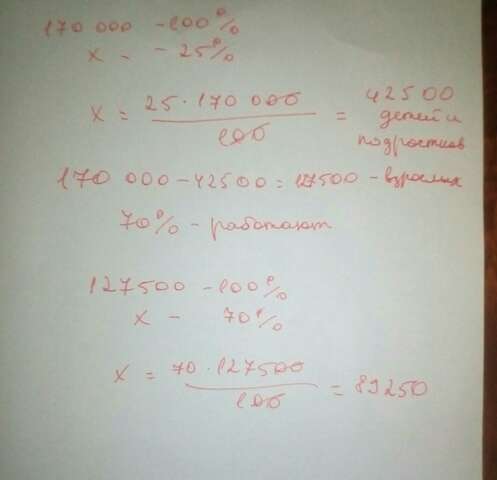 170 000 - 100%
x - - 25%
x = 25 · 170 000 / 100 = 42500 детей и подростков
170 000 - 42500 = 127500 - взрослых
70% - работают
127500 - 100%
x - 70%
x = 70 · 127500 / 100 = 89250